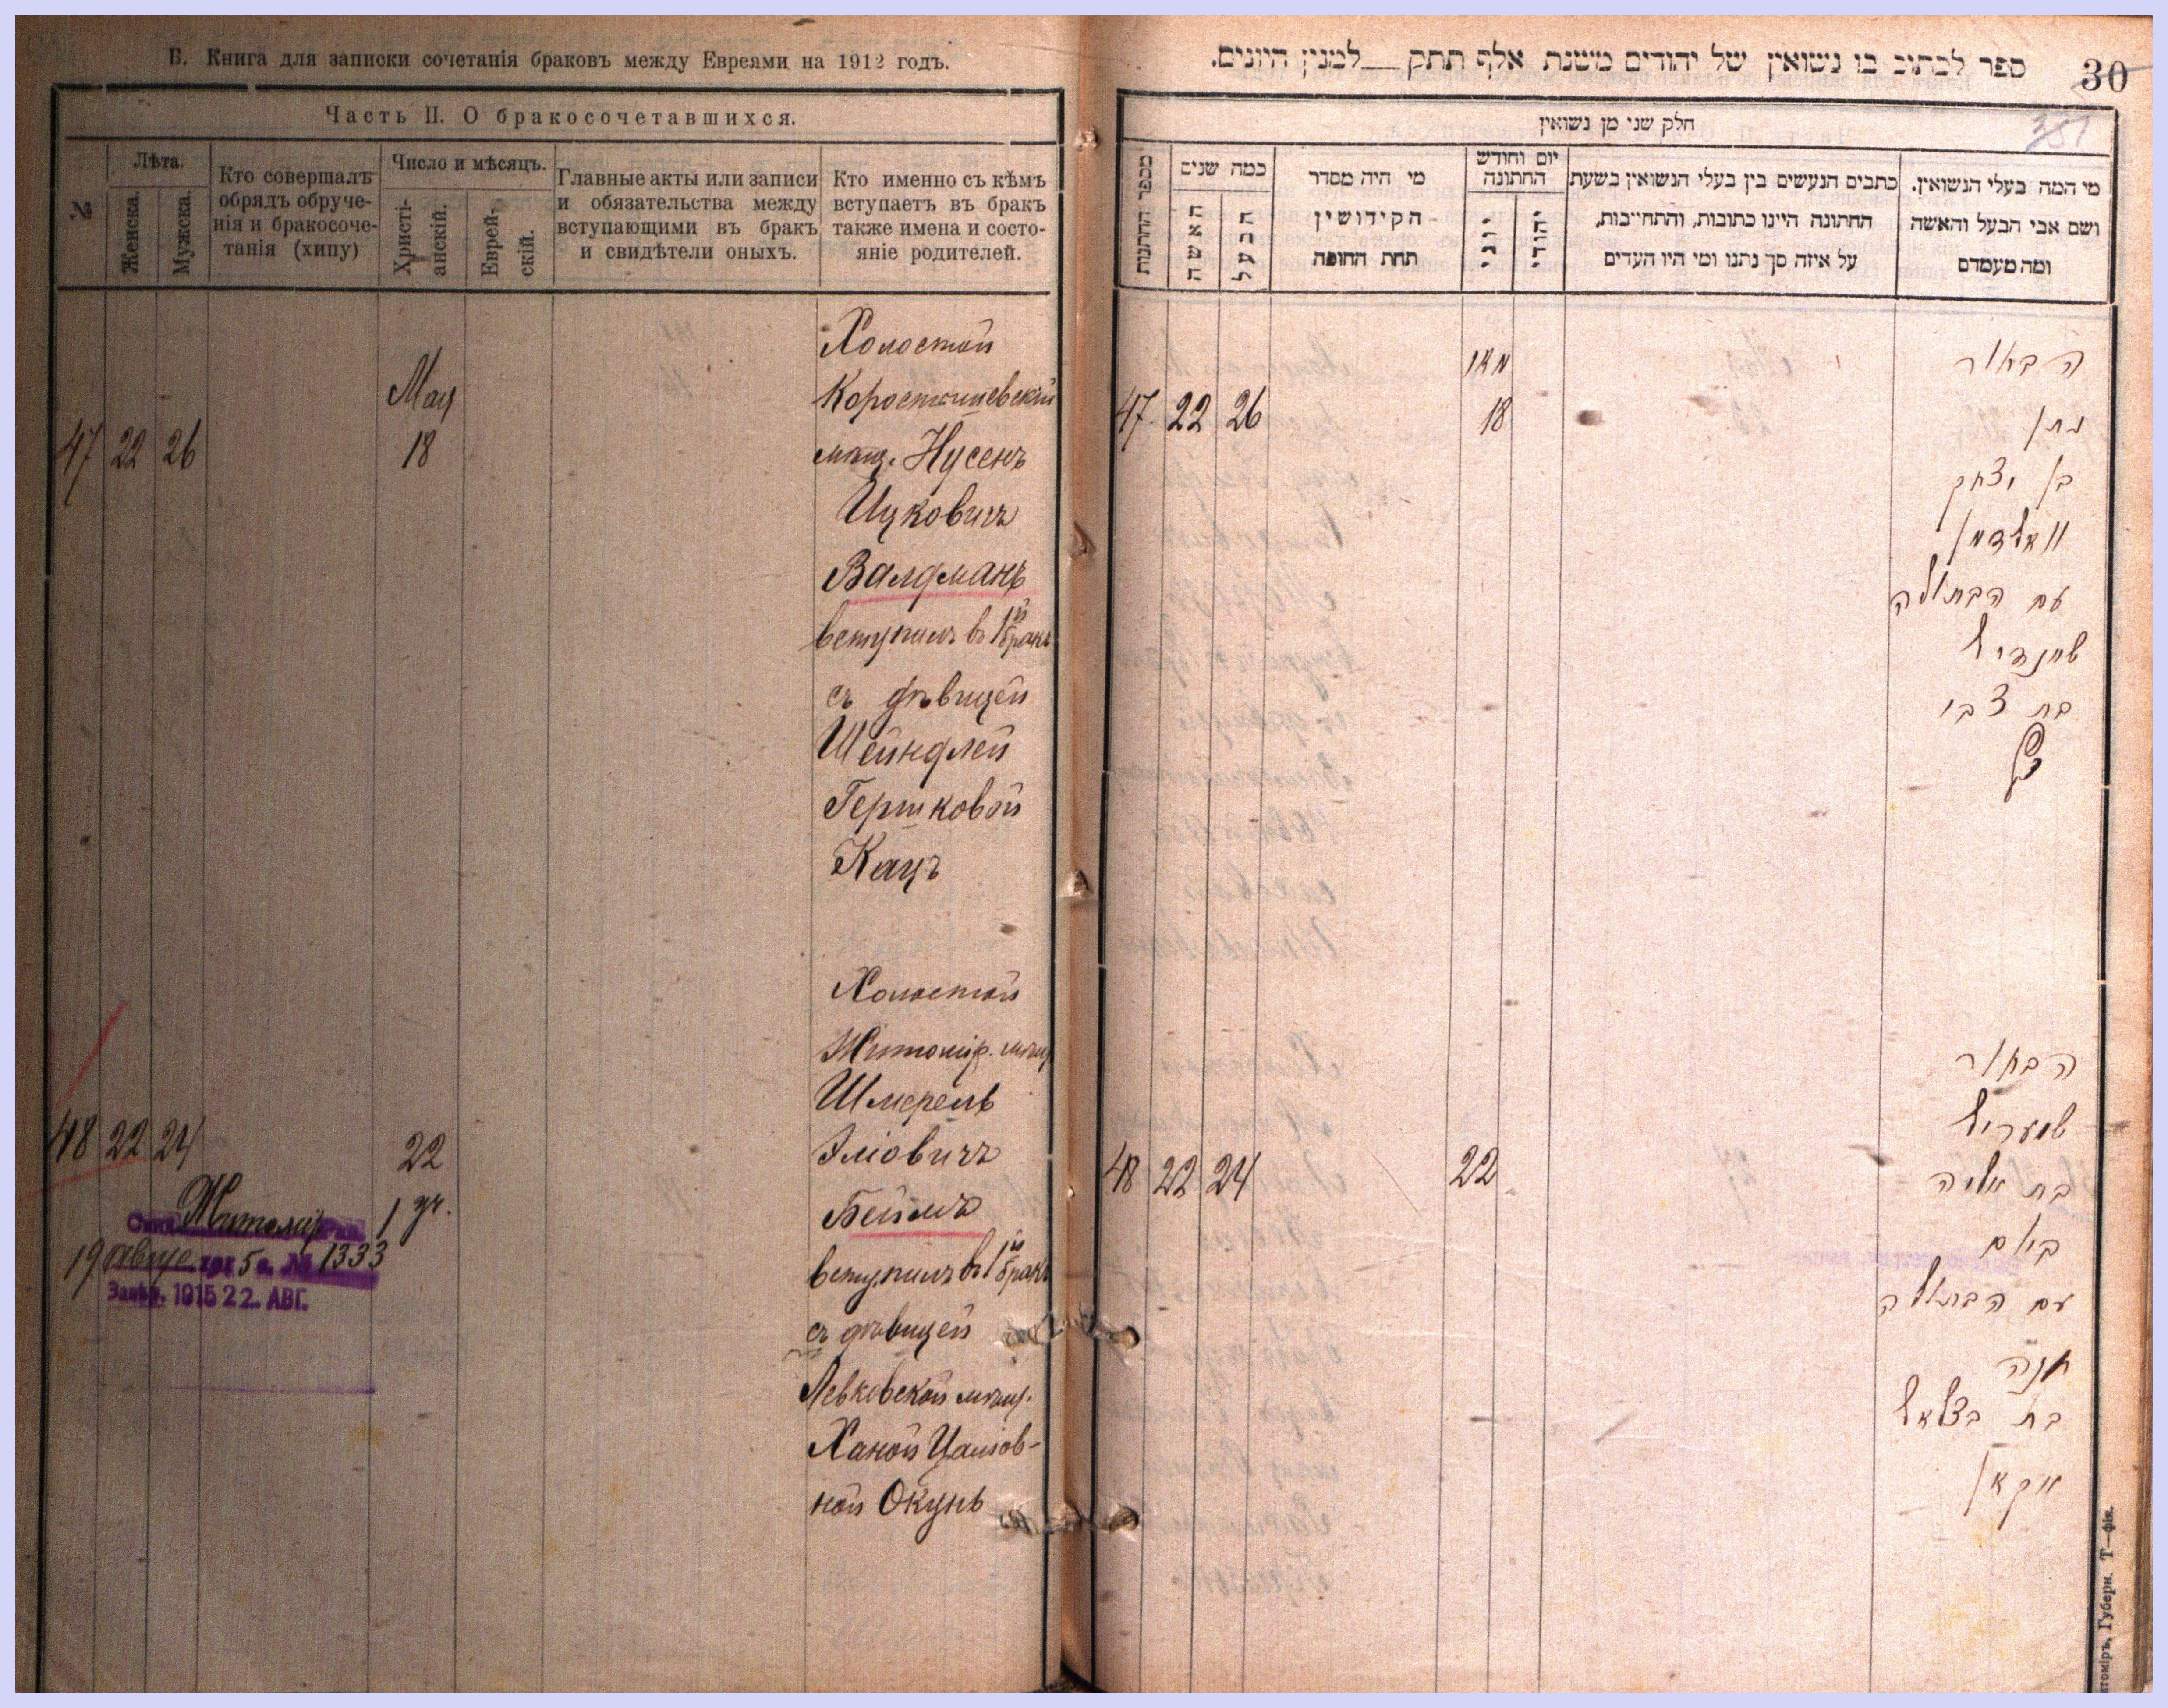 Б. Книга для записки сочетанія браковъ между Евреями на 1912 годъ.
Часть II. О бракосочетавшихся.
№
Лѣта.
Женска.
Мужска.
Кто совершалъ
обрядъ обруче-
нія и бракосоче-
танія (хипу)
Число и мѣсяцъ.
Христі-
анскій.
Еврей-
скій.
Главные акты или записи
и обязательства между
вступающими въ бракъ
и свидѣтели оныхъ.
Кто именно съ кѣмъ
вступаетъ въ бракъ
также имена и состо-
яніе родителей.
Холостой
Мая
Коростишевскій
47 22 26 18
мѣщ. Нусенъ
Ицковичъ
Валдманъ
вступилъ въ 1й бракъ
съ дѣвицей
Шейндлей
Гершковой
Кацъ
Холостой
Житомір. мѣщ
Шмерель
48 22 24 22
Эліовичъ
Беймъ
вступилъ въ 1й бракъ
съ дѣвицей
Левковской мѣщ.
Ханой Цаліов-
ной Окунь
Житомір 1 уч.
19 Авгус 1915 г. № 1333
Завѣр. 1915 22. АВГ.
ספר לכתוב בו נישואין של יהודים משנת אלף תתק __ למנין היונים.
30
351
חלק שני מן נשואין
מספר החתונות
כמה שנים
האשה
הבעל
מי היה מסדר
הקידושין
תחת החופה
יום וחודש
החתונה
יוני
יהודי
כתבים הנעשים בין בעלי הנשואין בשעת
החתונה היינו כתובות, והתחייבות,
על איזה סך נתנו ומי היו העדים
מי המה בעלי הנשואין.
ושם אבי הבעל והאשה
ומה מעמדם
הבחור
מאי
47 22 26 18
נתן
בן יצחק
וואלדמן
עם הבתולה
שיינדיל
בת צבי
כץ
הבחור
שמעריל
48 22 24 22
בת אליה
ביים
עם הבתולה
חנה
בת בצלאל
אקאן
томіръ, Губерн. Т—фія.